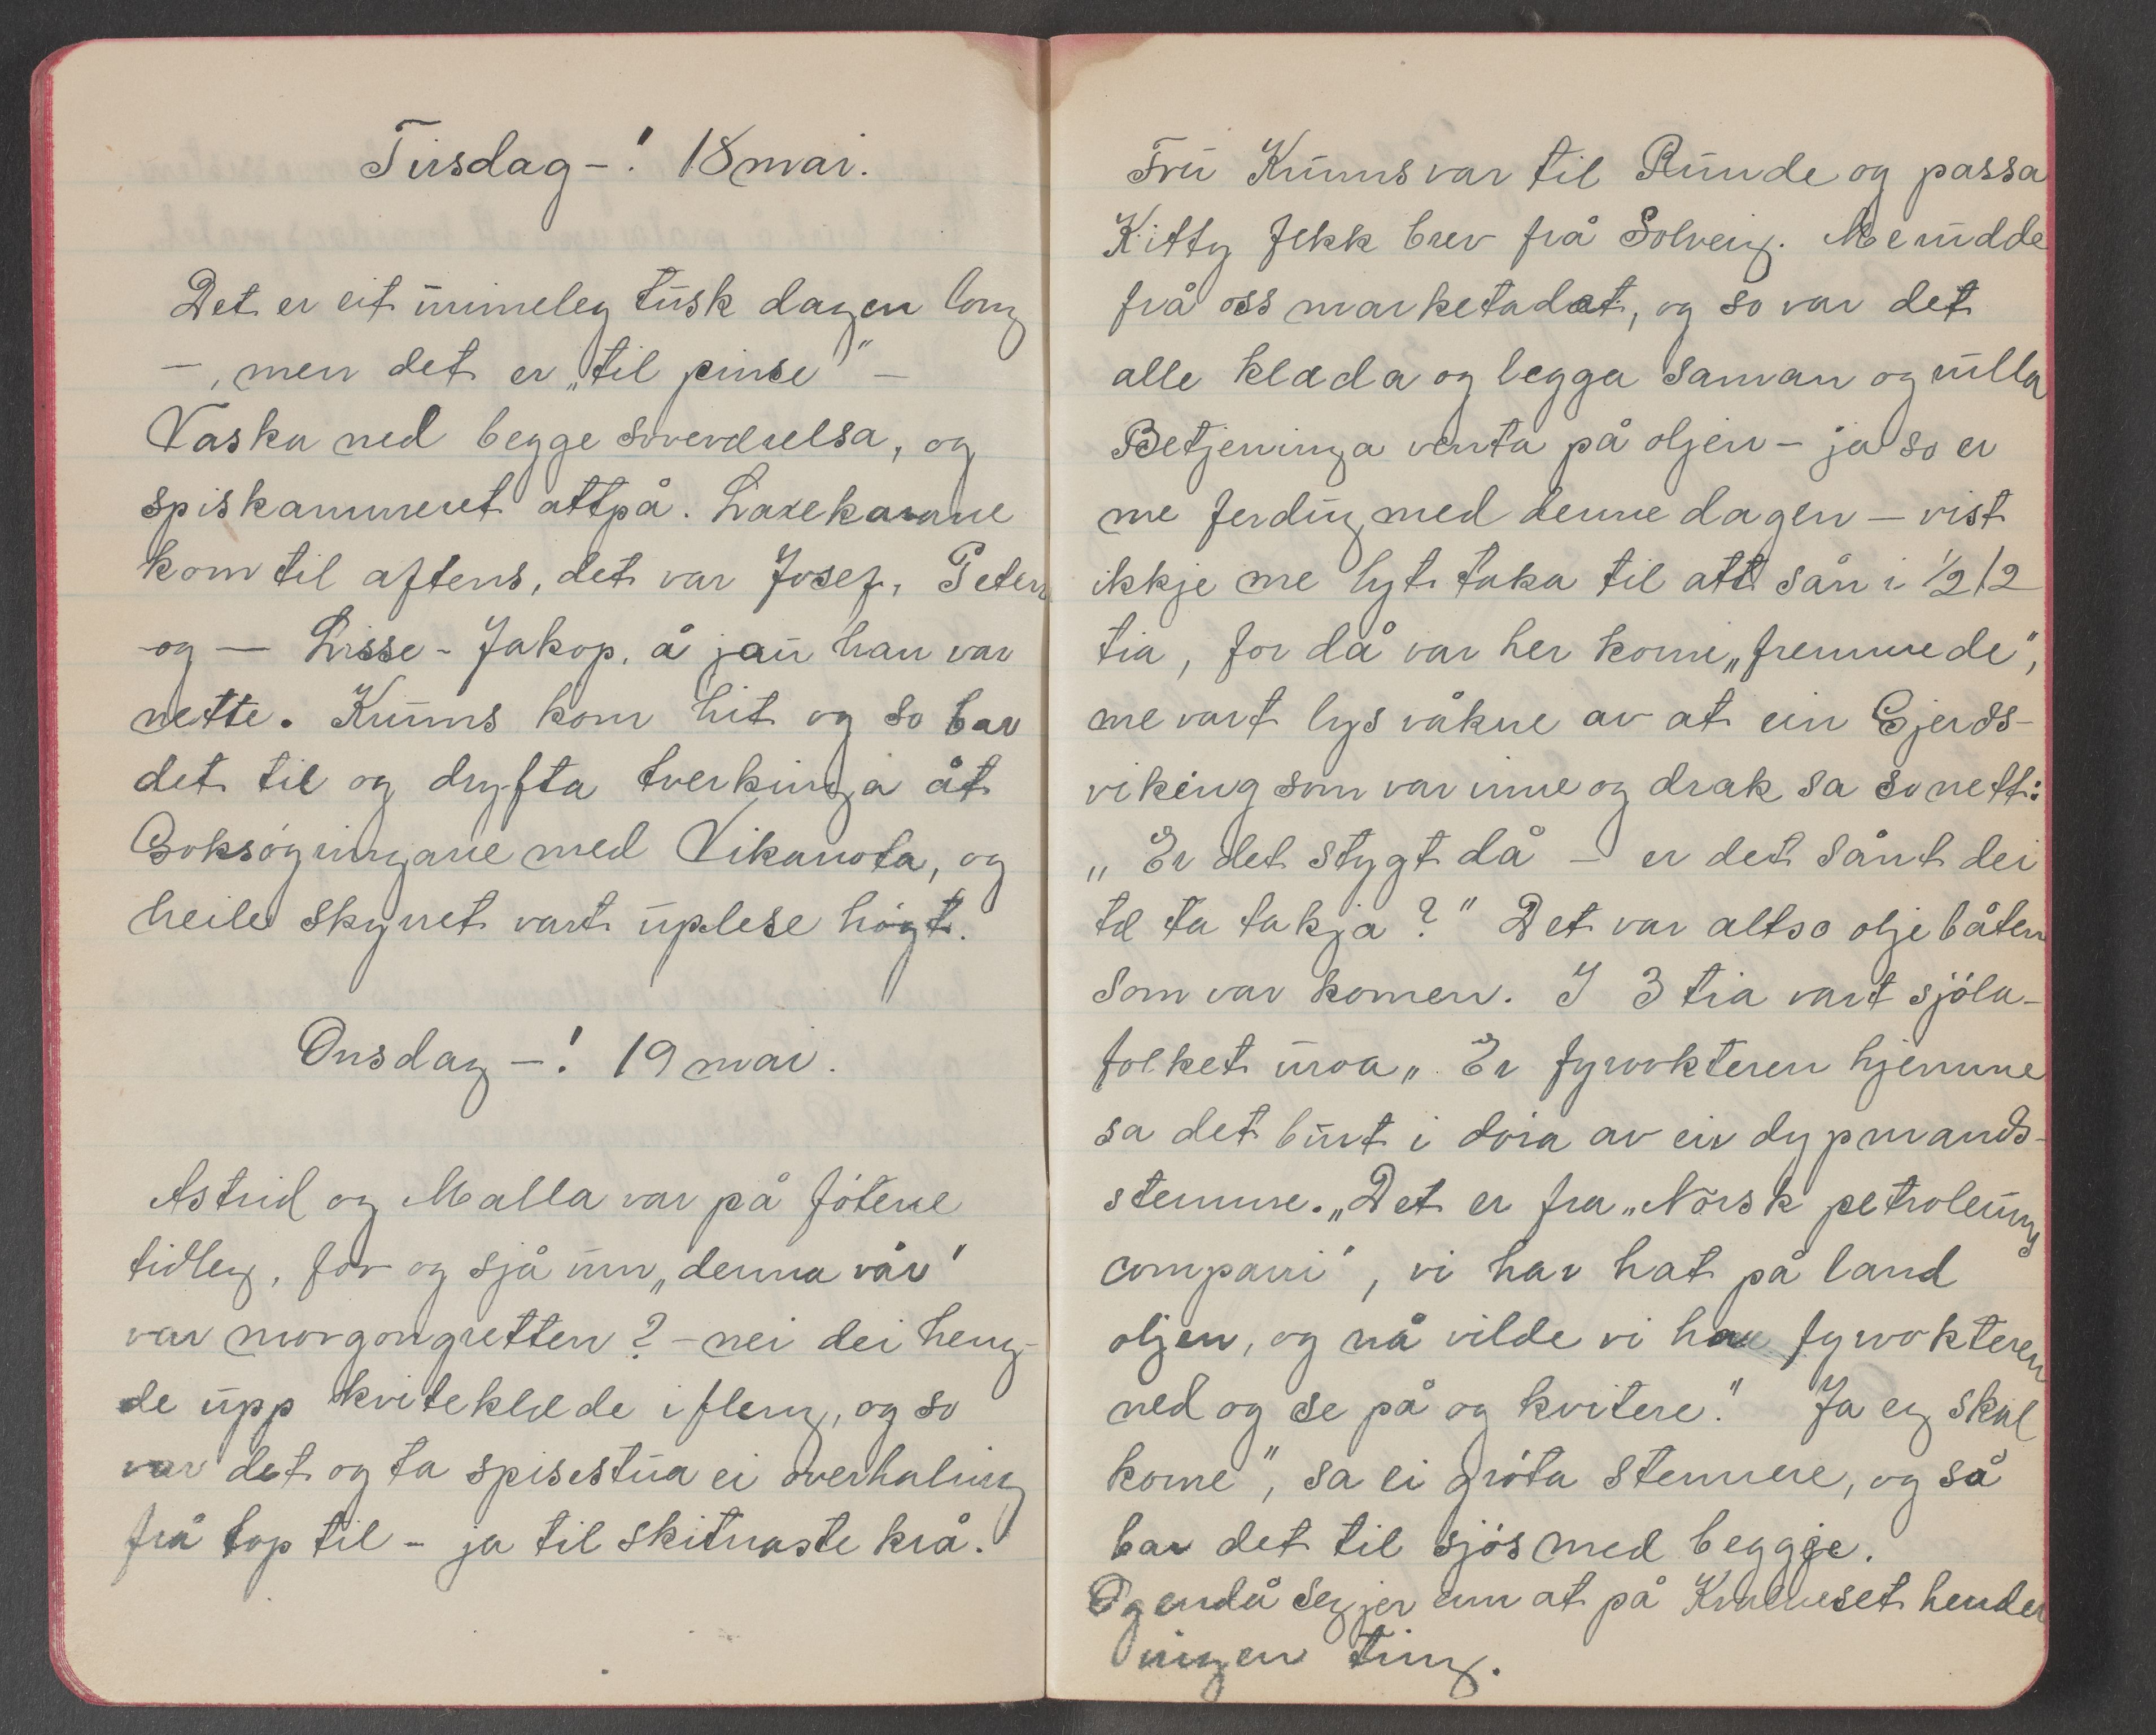 Tirsdag -! 18 mai.
Det er eit urimeleg tusk dagen long
-, men det er „til pinse" -
Vaska ned begge soverdrelsa, og
spiskammeret attpå. Laxekarane
kom til aftens, det var Josef, Peter
og — Lisse - Jakop, å jau han var
nette. Kuüms kom hit og so bar
det til og dryfta tverkinga åt
Goksøyringane med Vikanota, og
heile skyret vart uplese høgt.
Onsdag -! 19 mai.
Astrid og Malla var på føtene
tidleg, for og sjå um „denna vår"
var morgongretten? - nei dei heng-
de upp kviteklæde i fleng, og so
var det og ta spisestua ei overhaling
frå top til - ja til skitnaste krå.
Fru Kuüms var til Runde og passa
Kitty fekk brev frå Solveig. Me rudde
frå oss marketadet, og so var det
alle klæda og legga saman og rulla
Betjeninga venta på oljen - ja so er
me ferdug med denne dagen - vist
ikkje me lyt taka til att sån i ½ 12
tia, for då var her kome „fremmede",
me vart lys våkne av at ein Gjerds-
viking som var inne og drak sa so nett:
„Er det stygt då - er det sånt dei
td ta takja?" Det var altso oljebåten
som var komen. I 3 tia vart sjøla-
folket uroa „Er fyrvokteren hjemme
sa det burt i døra av ein dyp mands-
stemme. „Det er fra „Norsk petroleums
compani", vi har hat på land
oljen, og nå vilde vi hae fyrvokteren
ned og se på og kvitere." Ja eg skal
kome", sa ei grøta stemme, og så
bar det til sjøs med beggje.
Og endå segjer em at på Kvalneset hender
ingen ting.